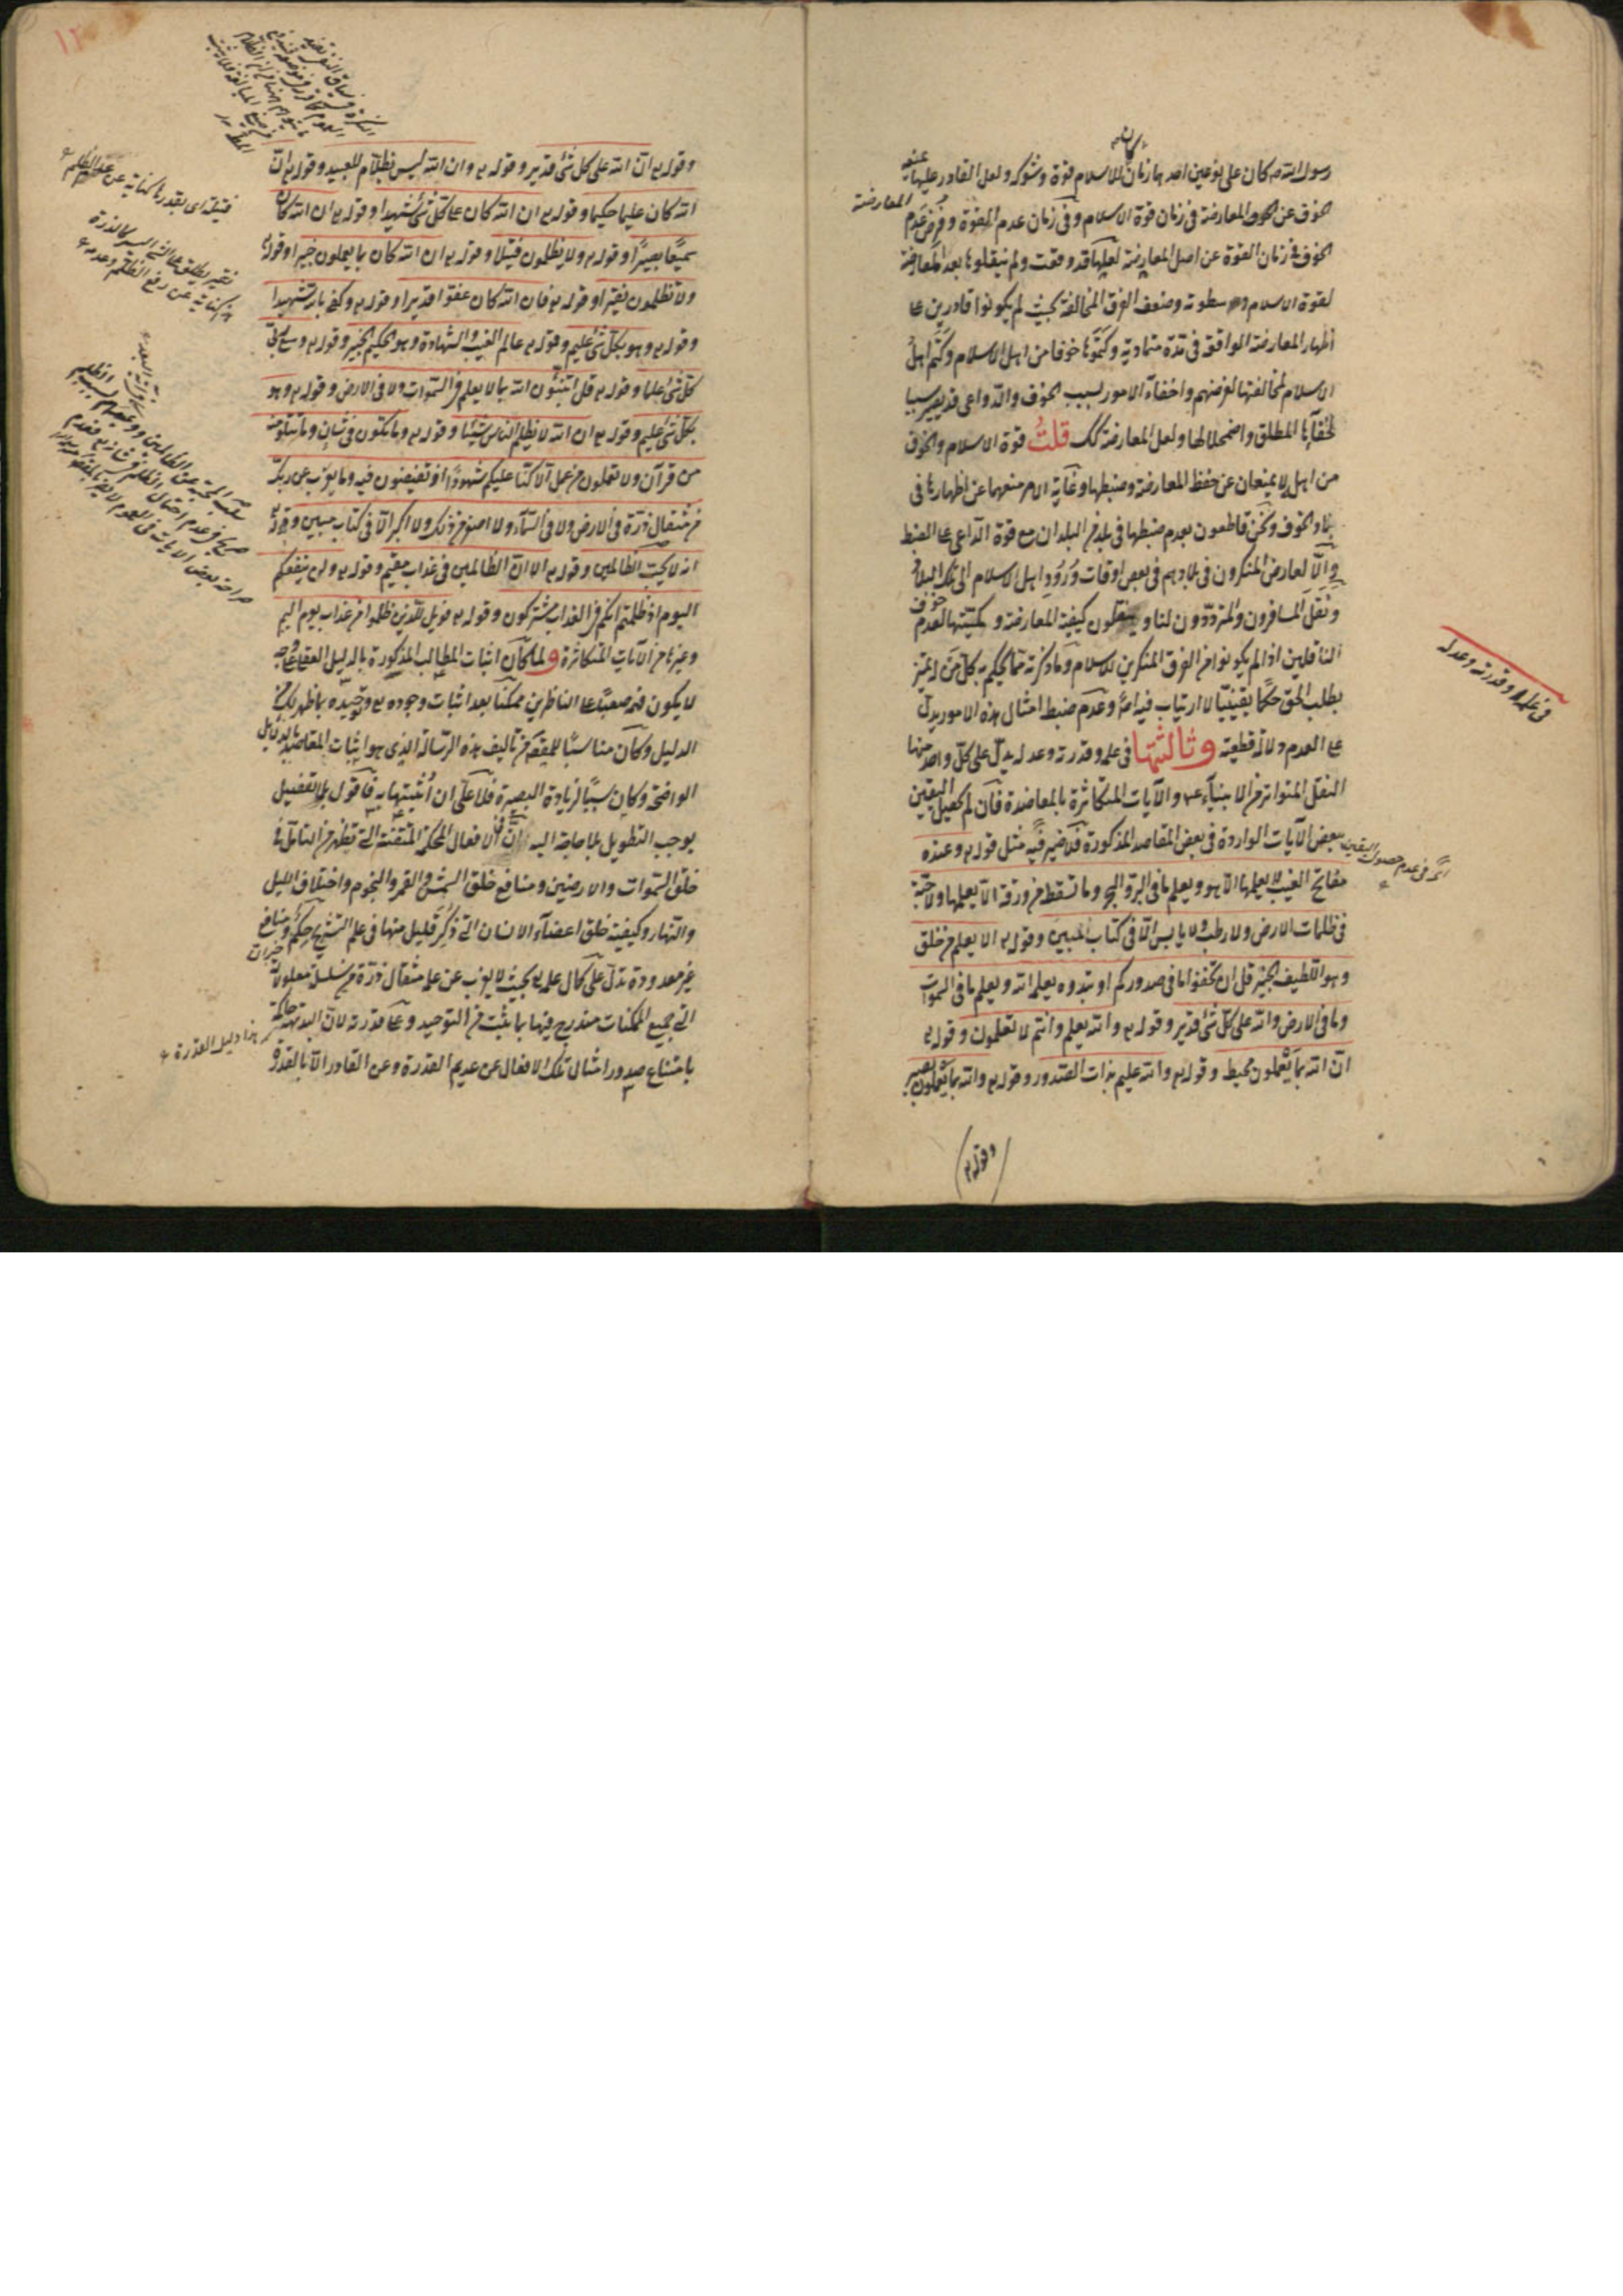 رسول الله صم كان على نوعين احدهما زمان كان للاسلام قوة وشوكه ولعل القادر عليها منعه
الخوف عن المعارضة فى زمان قوة الاسلام وفى زمان عدم القوة وفرض عدم
الخوف فى زمان القوة عن اصل المعارضة لعلها قد وقعت ولم ينقلوها بعد المعارضة
لقوة الاسلام وسطوته وضعف الفرق المخالفة بحيث لم يكونوا قادرين على
اظهار المعارضة الواقعة فى مدة متمادية وكتموها خوفا من اهل الاسلام وكتم اهل
الاسلام لمخالفتها لغرضهم واخفاء الامور لسبب الخوف والدواعى قد يصير سببا
لخفائها المطلق واضمحلالها ولعل المعارضة كك قلتُ قوة الاسلام والخوف
من اهله لا يمنعان عن حفظ المعارضة وضبطها وغاية الامر منعهما عن اظهارها فى
بلاد الخوف ونحن قاطعون بعدم ضبطها فى بلد من البلدان مع قوة الداعى على الضبط
والّا لعارض المنكرون فى بلادهم فى بعض اوقات وُرُودِ اهل الاسلام الى تلك البلاد
ونقل المسافرون والمترددون لنا وينقلون كيفية المعارضة وكميتها لعدم خوف
الناقلين اذا لم يكونوا من الفرق المنكرين للاسلام وما ذكرته مما يحكم به كل من له تميز
يطلب الحق حكما يقينيا لا ارتياب فيه اصلا وعدم ضبط امثال هذه الامور يدل
على العدم دلالة قطعية وثالثتها فى علمه وقدرته وعدله يدل على كل واحد منها
النقل المتواتر من الانبياء عم والآيات المتكاثرة بالمعاضدة فان لم يحصل اليقين
ببعض الآيات الواردة فى بعض المقاصد المذكورة فلا ضير فيه مثل قوله تع وعنده
مفاتح الغيب لا يعلمها الا هو ويعلم ما فى البر والبحر وما تسقط من ورقة الا يعلمها ولا حبة
فى ظلمات الارض ولا رطب ولا يابس الا فى كتاب مبين وقوله تع الا يعلم من خلق
وهو اللطيف الخبير قل ان تخفوا ما فى صدوركم او تبدوه يعلمه الله ويعلم ما فى السموات
وما فى الارض والله على كل شئ قدير وقوله تع والله يعلم وانتم لا تعلمون وقوله تع
ان الله بما يعملون محيط وقوله تع والله عليم بذات الصدور وقوله تع والله بما يعملون بصير
وقوله تع
المعارضة
فى علمه وقدرته وعدله
اى فى عدم حصول اليقين
١٢
وقوله تع ان الله على كل شئ قدير وقوله تع وان الله ليس بظلام للعبيد وقوله تع ان
الله كان عليما حكيما وقوله تع ان الله كان على كل شئ شهيدا وقوله تع ان الله كان
سميعا بصيرا وقوله تع ولا يظلمون فتيلا وقوله تع ان الله كان بما يعملون خبيرا وقوله تع
ولا تظلمون نقيرا وقوله تع فان الله كان عفوا قديرا وقوله تع وكفى بالله شهيدا
وقوله تع وهو بكل شئ عليم وقوله تع عالم الغيب والشهادة وهو الحكيم الخبير وقوله تع وسع ربى
كل شئ علما وقوله تع قل اتنبئون الله بما لا يعلم فى السموات ولا فى الارض وقوله تع وهو
بكل شئ عليم وقوله تع ان الله لا يظلم الناس شيئا وقوله تع وما تكون فى شان وما تتلو منه
من قرآن ولا تعملون من عمل الا كنا عليكم شهودا اذ تفيضون فيه وما يعزب عن ربك
من مثقال ذرة فى الارض ولا فى السماء ولا اصغر من ذلك ولا اكبر الا فى كتاب مبين وقوله تع
انه لا يحب الظالمين وقوله تع الا ان الظالمين فى عذاب مقيم وقوله تع ولن ينفعكم
اليوم اذ ظلمتم انكم فى العذاب مشتركون وقوله تع فويل للذين ظلموا من عذاب يوم اليم
وغيرها من الآيات المتكاثرة ولما كان اثبات المطالب المذكورة بالدليل العقلى على وجه
لا يكون فهمه صعبا على الناظرين ممكنا بعد اثبات وجوده تع وتوحيده بما ظهر لك من
الدليل وكان مناسبا للمقصد من تاليف هذه الرسالة الذى هو اثبات المقاصد بالدلايل
الواضحة وكان سببا لزيادة البصيرة فلا علىّ ان اثبتها به فاقول بلا تفصيل
يوجب التطويل بلا حاجة اليه ان الافعال المحكمة المتقنة التى تظهر من التامل فى
خلق السموات والارضين ومنافع خلق الشمس والقمر والنجوم واختلاف الليل
والنهار وكيفية خلق اعضاء الانسان التى ذُكِرَ قليل منها فى علم التشريح حِكَم ومنافع
غير معدودة تدل على كمال علمه تع بحيث لا يعزب عن علمه مثقال ذرة من سلسلة معلولاته
التى جميع الممكنات مندرج فيها بما يثبت من التوحيد وعلى قدرته لان البديهة حاكمة
بامتناع صدور امثال تلك الافعال عن عديم القدرة وعن القادر الا بالقدرة
فتيلا اى بقدرها كناية عن عدم الظلم
نقير يطلق على الشئ اليسير كالذرة
كناية عن رفع الظلم وعدمه
هذا دليل القدرة